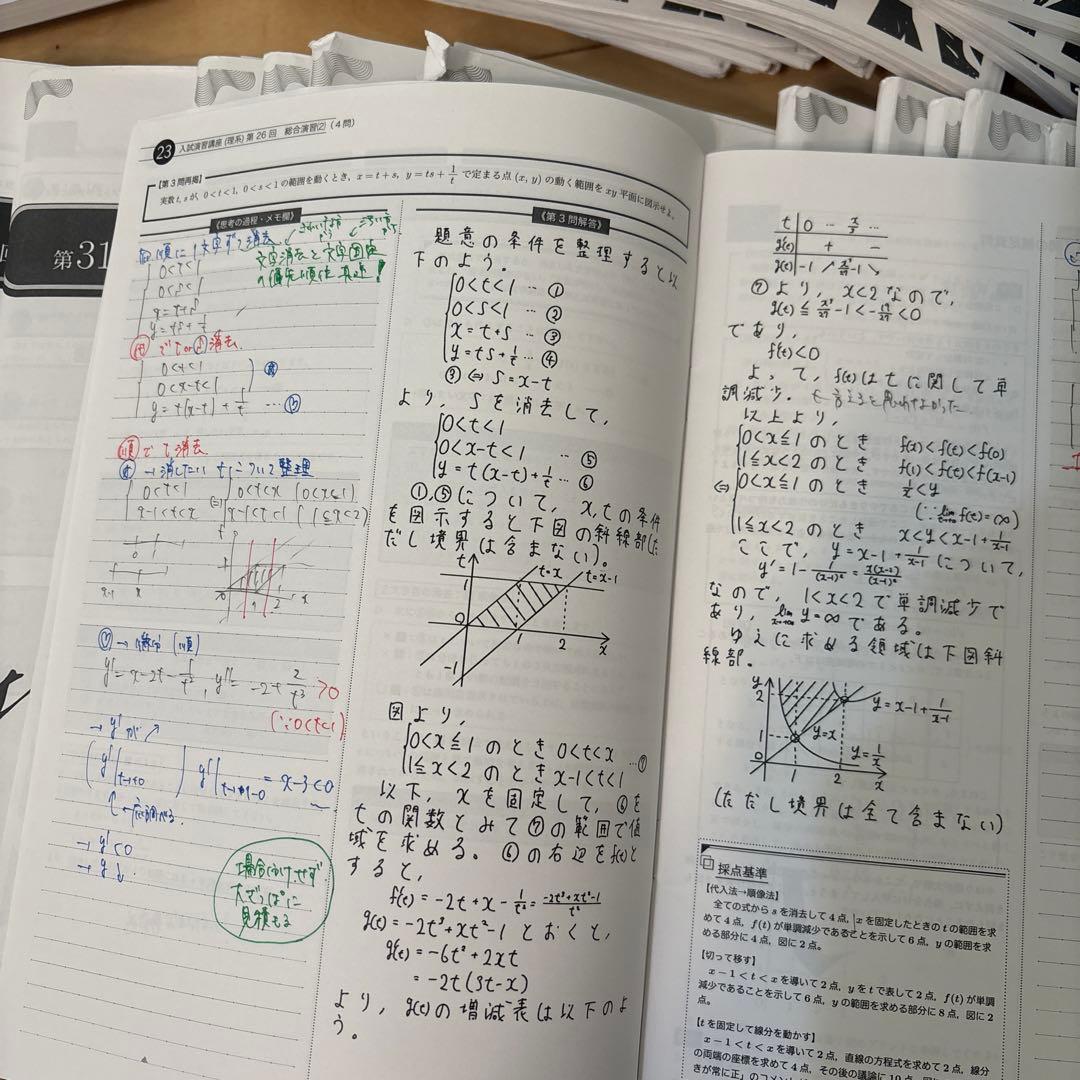 第31
23 入試演習講座(理系)第26回 総合演習(2)(4問)
【第3問再掲】
実数t, sが, 0<t<1, 0<s<1の範囲を動くとき, x=t+s, y=ts+1/t で定まる点(x, y)の動く範囲をxy平面に図示せよ。
《思考の過程・メモ欄》
1文字ずつ消去
文字消去と文字固定
の優先順位
0<t<1
0<s<1
x=t+s
y=ts+1/t
消去
0<t<1
0<x-t<1
y=t(x-t)+1/t
順 で t 消去
→消したい tについて整理
0<t<1
x-1<t<x
⇔
0<t<x (0<x≦1)
x-1<t<1 (1≦x<2)
y'=x-2t-1/t², y''=-2+2/t³>0
(∵0<t<1)
→ y'が↗
y'| t→+0
y'| t→1-0 = x-3<0
→ y'<0
→ y↓.
場合分けせず
大ざっぱに
見積もる
《第3問解答》
題意の条件を整理すると以
下のよう。
0<t<1 … ①
0<s<1 … ②
x=t+s … ③
y=ts+1/t … ④
③⇔ s=x-t
より, sを消去して,
0<t<1
0<x-t<1 … ⑤
y=t(x-t)+1/t … ⑥
①,⑤について, x,tの条件
を図示すると下図の斜線部(た
だし境界は含まない)。
t
t=x
t=x-1
1
0
1
2
x
-1
図より,
0<x≦1のとき 0<t<x
1≦x<2のとき x-1<t<1 …⑦
以下, xを固定して, ⑥を
tの関数とみて⑦の範囲で値
域を求める。⑥の右辺をf(t)と
すると,
f'(t)=-2t+x-1/t²=(-2t³+xt²-1)/t²
g(t)=-2t³+xt²-1とおくと,
g'(t)=-6t²+2xt
=-2t(3t-x)
より, g(t)の増減表は以下のよ
う。
t 0 … x/3 …
g'(t) + −
g(t) -1 ↗ x³/27-1 ↘
⑦より, x<2なので,
g(t)≦x³/27-1<-19/27<0
であり,
f'(t)<0
よって, f(t)はtに関して単
調減少。
以上より,
0<x≦1のとき f(x)<f(t)<f(0)
1≦x<2のとき f(1)<f(t)<f(x-1)
⇔ 0<x≦1のとき 1/x<y
(∵lim f(t)=∞)
1≦x<2のとき x<y<x-1+1/(x-1)
ここで, y=x-1+1/(x-1)について,
y'=1-1/(x-1)²=x(x-2)/(x-1)²
なので, 1<x<2で単調減少で
あり, lim y=∞である。
ゆえに求める領域は下図斜
線部。
y
2
1
0
1
2
x
y=x-1+1/(x-1)
y=x
y=1/x
(ただし境界は全て含まない)
採点基準
【代入法→順像法】
全ての式からsを消去して4点, xを固定したときのtの範囲を求
めて4点, f(t)が単調減少であることを示して6点, yの範囲を求
める部分に4点, 図に2点。
【切って移す】
x-1<t<xを導いて2点, yをtで表して2点, f(t)が単調
減少であることを示して6点, yの範囲を求める部分に8点, 図に2
点。
【tを固定して線分を動かす】
x-1<t<xを導いて2点, 直線の方程式を求めて2点, 線分
の両端の座標を求めて4点, その後の議論に10点,
きが常に正」のコメント